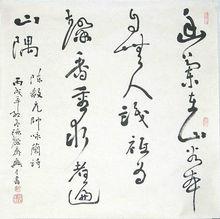 幽蘭在山谷本
自無人識祇為
馨香重求者遍
山隅
陳毅元帥咏蘭詩
丙戌年